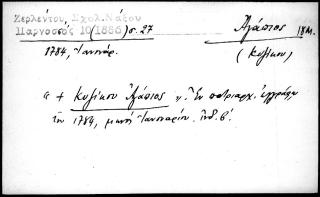 Ζερλέντου, Σχολ. Νάξου
Παρνασσός 10(1886)σ. 27
Ἀγάπιος
(Κυζίκου)
1784, Ἰαννουάρ.
"+ Κυζίκου Ἀγάπιος". Ἐν πατριαρχ. ἐγγράφῳ
τῷ 1784, μηνὶ Ἰαννουαρίῳ. Ἰνδ. β'.